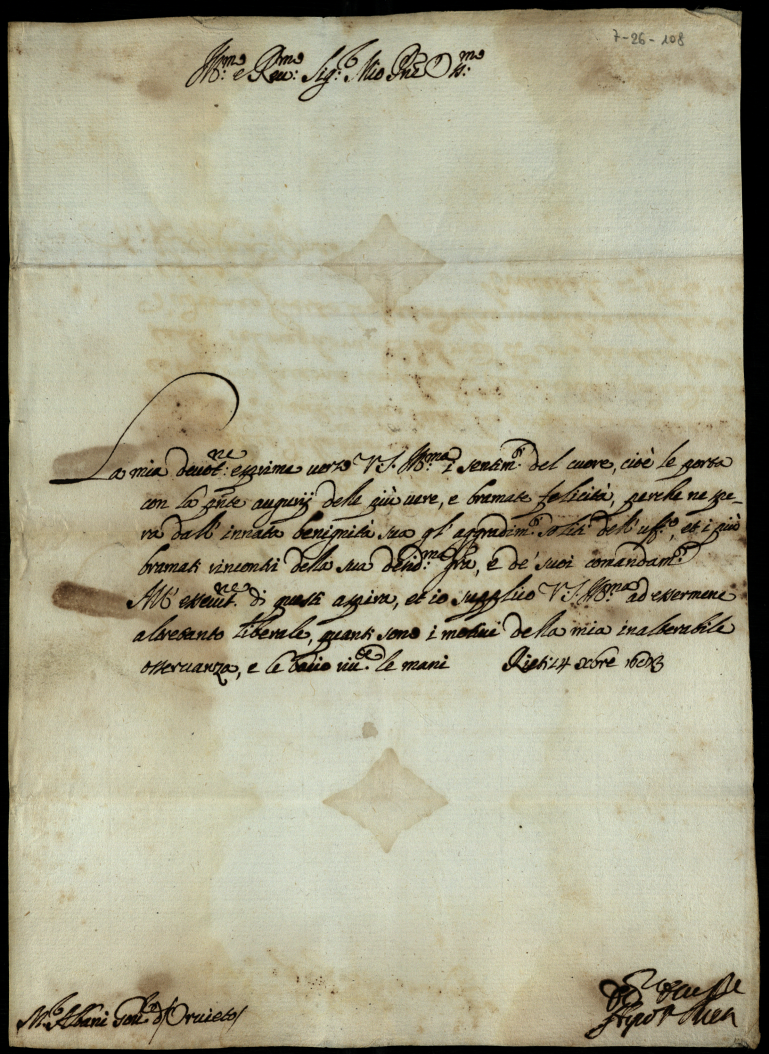 7-26-108
Ill.mo e Rev.mo Sig.r Mio Pne Col.mo
La mia devot.ne esprime verso V.S. Ill.ma i sentim.ti del cuore, cioè le porta
con la pnte augurij delle più vere, e bramate felicità, perche ne spe-
ra dall' innata benignità sua gl' aggradim.ti soliti dell' uff.o, et i più
bramati rincontri della sua desid.ma gra, e de' suoi comandam.ti
All' essecut.ne di questi aspira, et io supplico V.S. Ill.ma ad essermene
altretanto liberale, quanti sono i motivi della mia inalterabile
osservanza, e le bacio riv.te le mani Rieti 24 xbre
M.r Albani Gov.re d'Orvieto